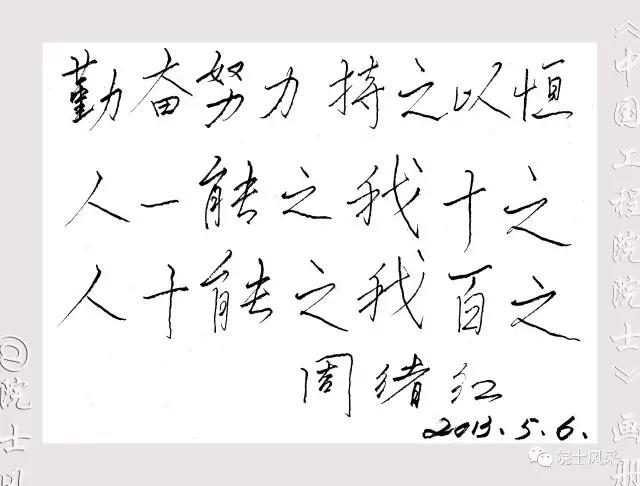 勤奋努力持之以恒
人一能之我十之
人十能之我百之
周绪红
2013.5.6.
《中国工程院院士》画册
院士风采
@院士风